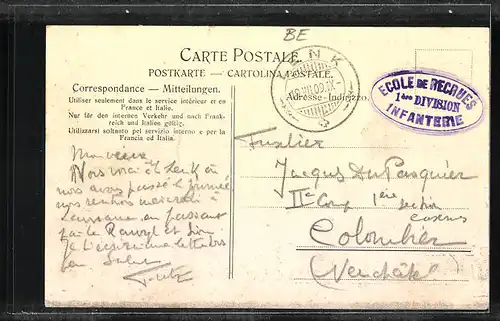 BE
CARTE POSTALE.
POSTKARTE — CARTOLINA POSTALE.
Correspondance — Mitteilungen.
Utiliser seulement dans le service intérieur et en
France et Italie.
Nur für den internen Verkehr und nach Frank-
reich und Italien gültig.
Utilizzarsi soltanto pel servizio interno e per la
Francia ed Italia.
Adresse - Indirizzo.
ECOLE DE RECRUES
1ère DIVISION
INFANTERIE
Mon vieux
Nous voici à Lenk où
nous avons passé la journée
nous rentrons mercredi à
Lausanne en passant
par le Rawyl et Sion
je t'écrirai une lettre
Salut
Fusilier
Jacques DuPasquier
IIe Comp 1ère section
Colombier
(Neuchâtel)